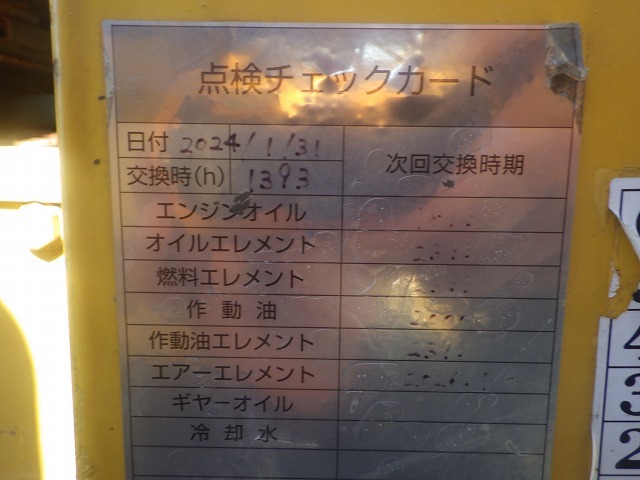 点検チェックカード
日付 2024/1/31
交換時(h) 1393
次回交換時期
エンジンオイル
オイルエレメント
燃料エレメント
作動油
作動油エレメント
エアーエレメント
ギヤーオイル
冷却水
4
3
2